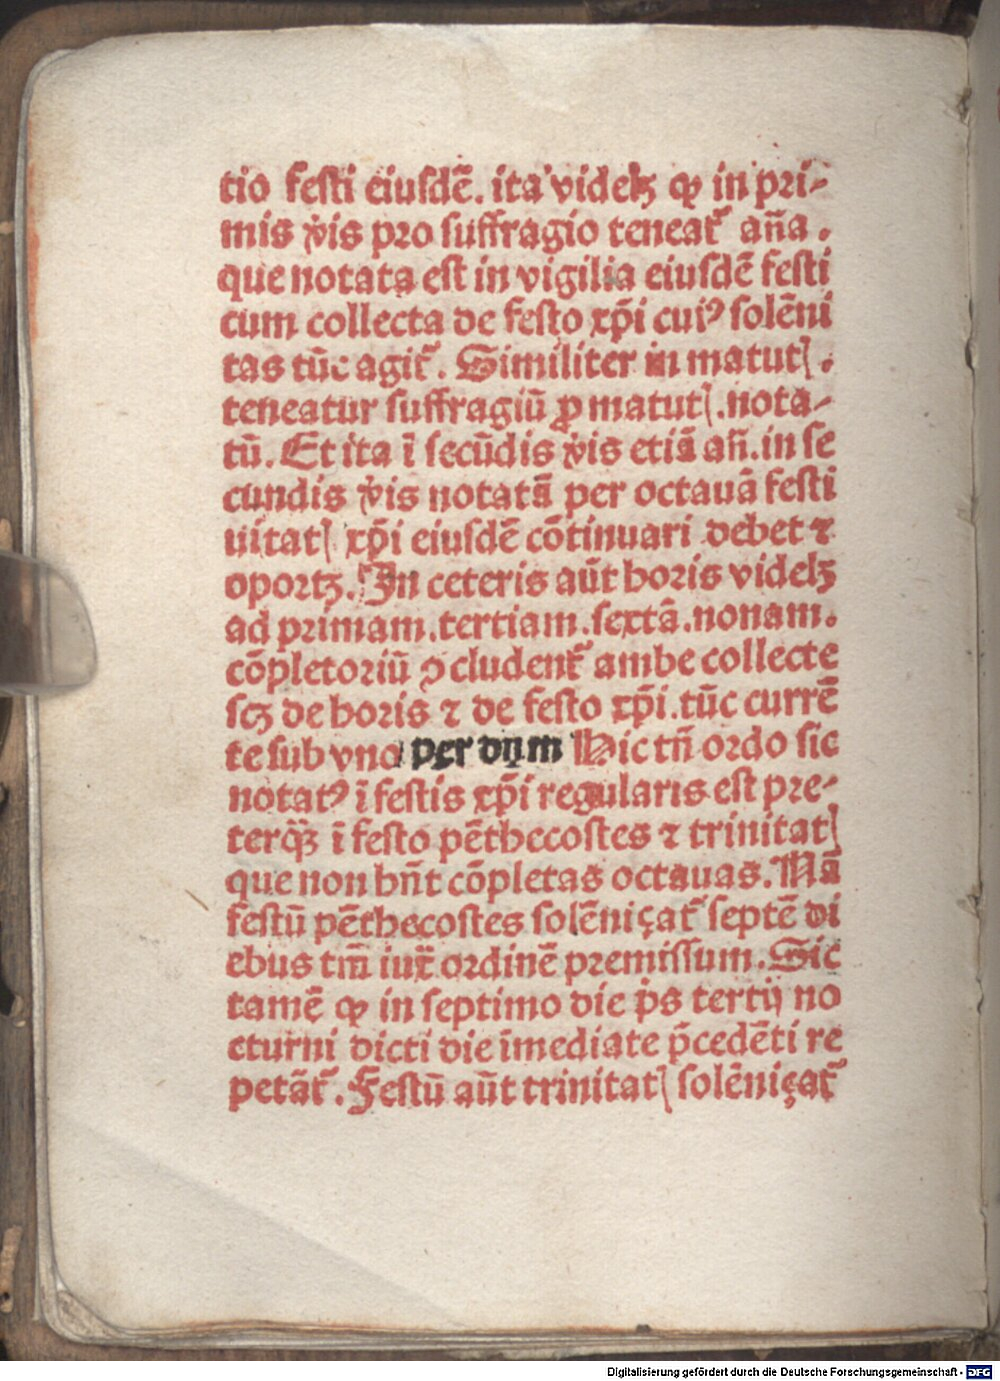 tio festi eiusdē. ita videlꝫ ꝙ in pri-
mis v̓is pro suffragio teneat᷑ an̄a.
que notata est in vigilia eiusdē festi
cum collecta de festo xp̄i cuiꝰ solēni
tas tūc agit᷑. Similiter in matutꝭ.
teneatur suffragiū ꝓ matutꝭ. nota-
tū. Et ita ī secūdis v̓is etiā an̄. in se
cundis v̓is notatā per octauā festi
uitatꝭ xp̄i eiusdē cōtinuari debet ⁊
oportꝫ. In ceteris aūt horis videlꝫ
ad primam. tertiam. sextā. nonam.
cōpletoriū ꝯcludent᷑ ambe collecte
scꝫ de horis ⁊ de festo xp̄i. tūc currē
te sub vno per dn̄m Hic tn̄ ordo sic
notatꝰ ī festis xp̄i regularis est pre-
terqꝫ̄ ī festo pēthecostes ⁊ trinitatꝭ
que non hn̄t cōpletas octauas. Nā
festū pēthecostes solēniçat᷑ septē di
ebus tm̄ iux̄ ordinē premissum. Sic
tamē ꝙ in septimo die p̄s tertij no
cturni dicti die īmediate p̄cedēti re
petāt᷑. Festū aūt trinitatꝭ solēniçat᷑
Digitalisierung gefördert durch die Deutsche Forschungsgemeinschaft - DFG